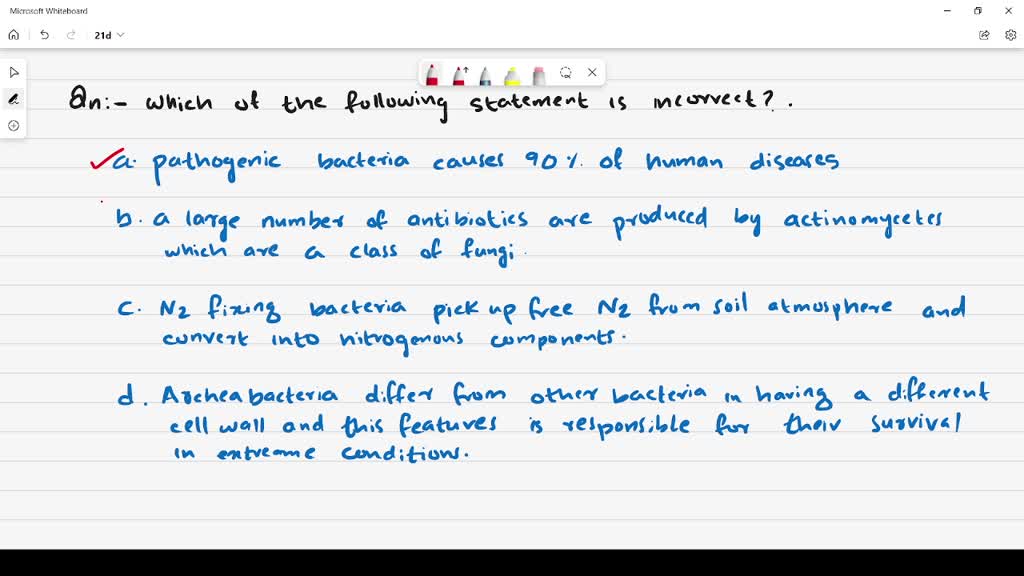 Microsoft Whiteboard
21d
Qn:- which of the following statement is incorrect?.
a. pathogenic bacteria causes 90% of human diseases
b. a large number of antibiotics are produced by actinomycetes
which are a class of fungi.
c. N2 fixing bacteria pick up free N2 from soil atmosphere and
convert into nitrogenous components.
d. Archeabacteria differ from other bacteria in having a different
cell wall and this features is responsible for their survival
in extreme conditions.